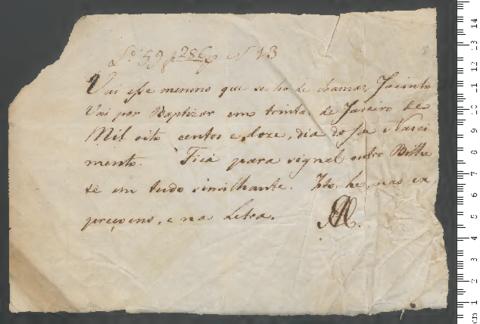 Lº 59 f 286 N 13
Vai esse menino que se ha de chamar Jacinto
Vai por Baptizar em trinta de Janeiro de
Mil oito centos e doze, dia do seu Nasci
mento. Fica para signal outro Bilhe
te em tudo similhante. Isto, he, nas ex
preçoens, e nas Letra.